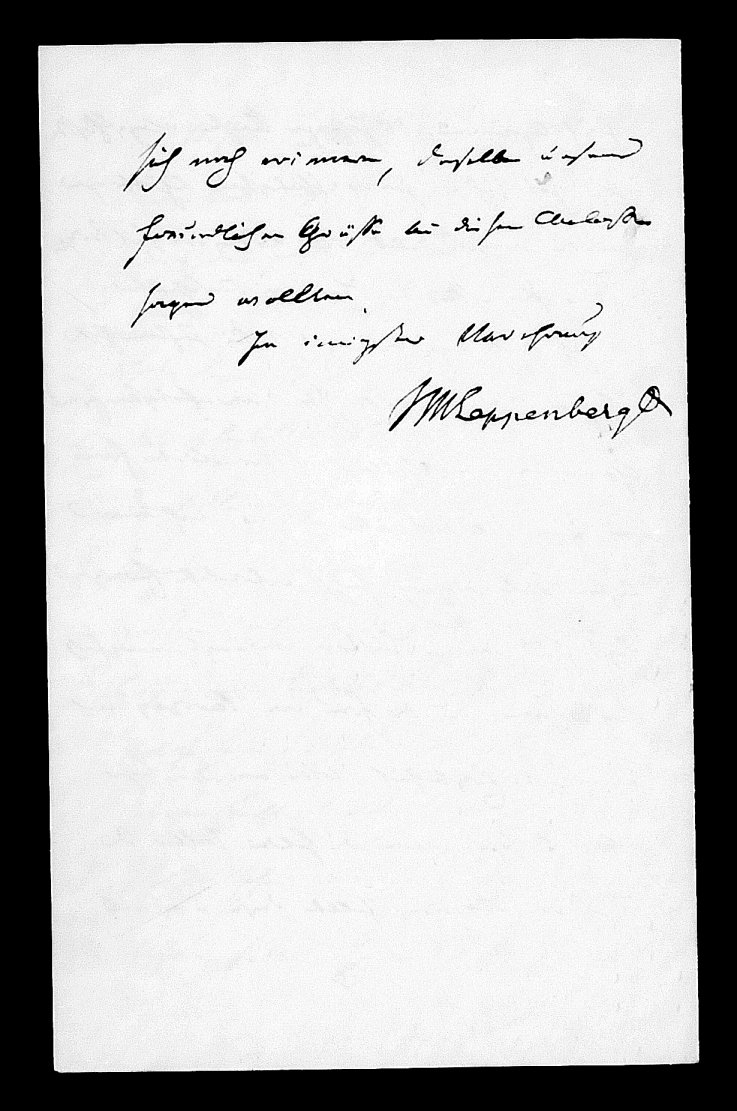 sich noch erinnern, derselben unsere
freundlichen Grüsse bei diesem Anlasse
sagen wollten.
In innigster Verehrung
JMLappenberg Dr